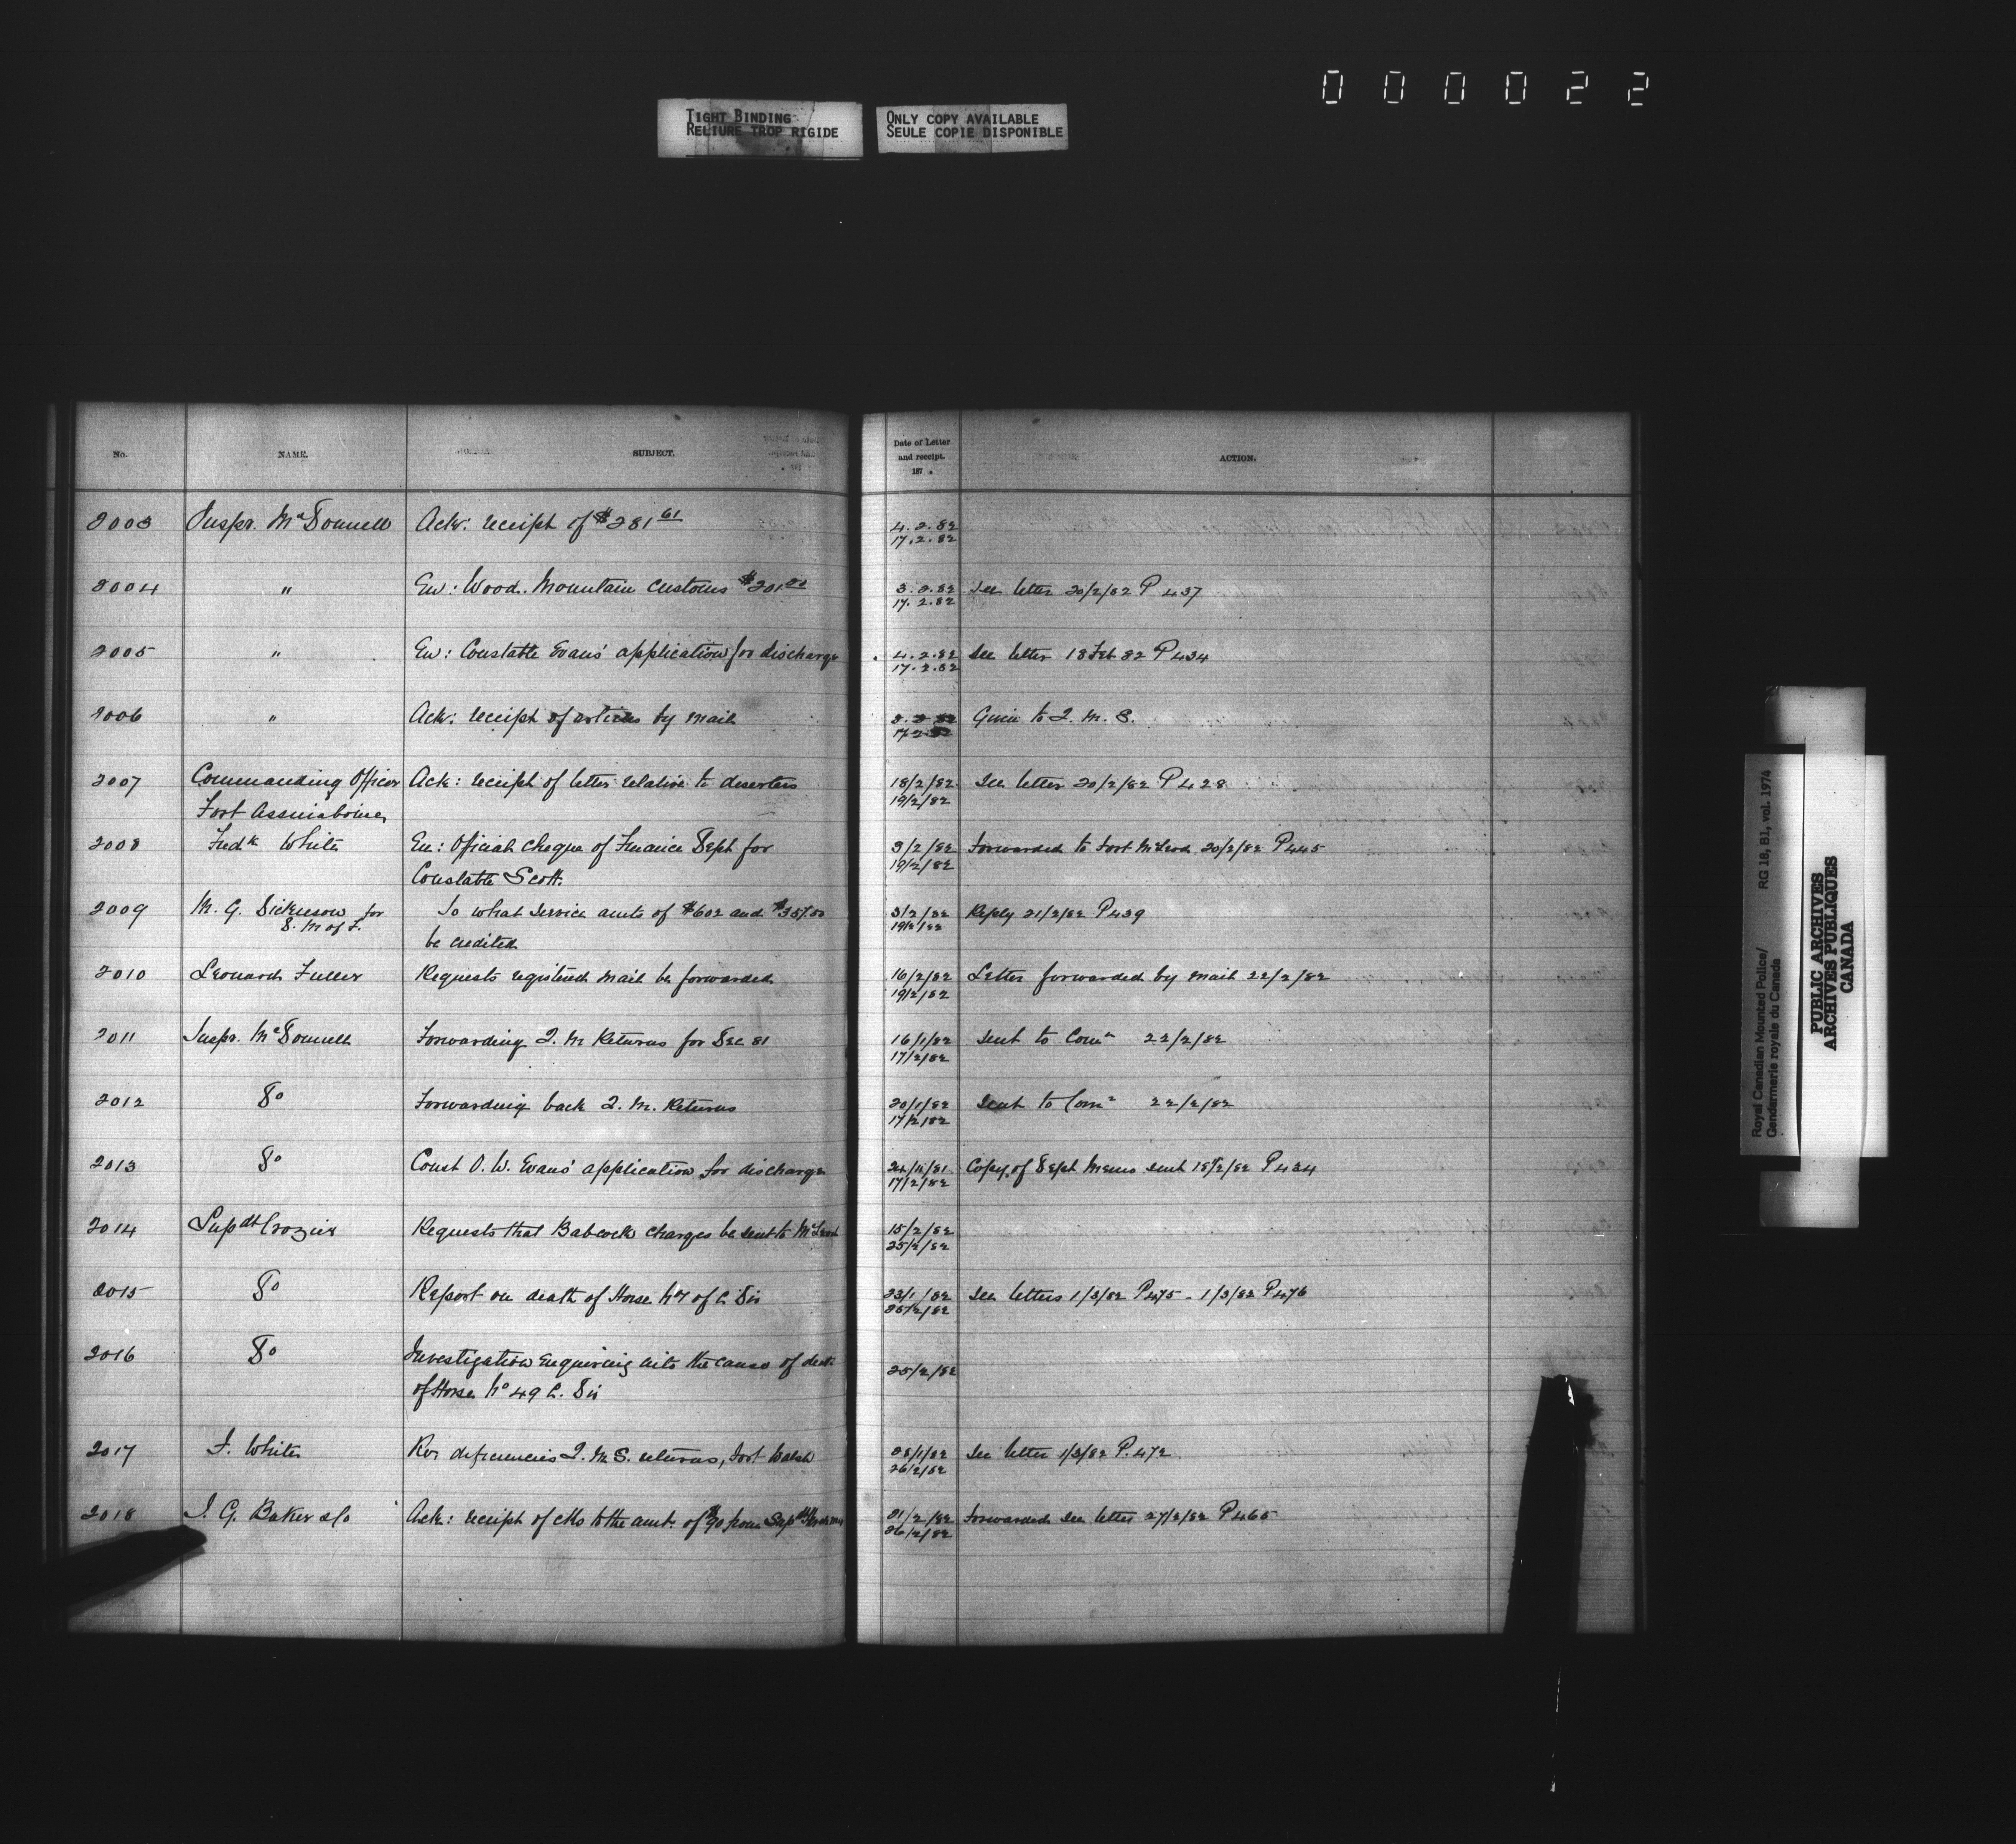 000022
TIGHT BINDING
RELIURE TROP RIGIDE
ONLY COPY AVAILABLE
SEULE COPIE DISPONIBLE
No. NAME. SUBJECT. Date of Letter and receipt. 187 . ACTION.
2003 Inspr. McDonnell Ack: receipt of $281 61 4.2.82
17.2.82
2004 " En: Wood. Mountain Customs $201 3.2.82 See letter 20/2/82 P 437
17.2.82
2005 " En: Constable Evans' application for discharge 4.2.82 See letter 18 Feb 82 P434
17.2.82
2006 " Ack: receipt of articles by mail Given to Q. M. S.
17 2 82
2007 Commanding Officer Ack: receipt of letter relative to deserters 18/2/82 See letter 20/2/82 P428
Fort Assiniboine 19/2/82
2008 Fredk White En: Official cheque of Finance Dept for 3/2/82 Forwarded to Fort McLeod 20/2/82 P445
Constable Scott. 19/2/82
2009 M. G. Dickieson for To what service amts of $602 and 3/2/82 Reply 21/2/82 P439
D. M of F. be credited 19/2/82
2010 Leonard Fuller Requests registered mail be forwarded 16/2/82 Letter forwarded by mail 22/2/82
19/2/82
2011 Inspr. McDonnell Forwarding Q. M Returns for Dec 81 16/1/82 Sent to Comr 22/2/82
17/2/82
2012 Do Forwarding back Q. M. Returns 20/1/82 Sent to Comr 22/2/82
17/2/82
2013 Do Const O. W. Evans' application for discharge 24/11/81 Copy of Dept Memo sent 18/2/82 P434
17/2/82
2014 Supdt Crozier Requests that Babcock charges be sent to McLeod 15/2/82
25/2/82
2015 Do Report on death of Horse No 7 of C. Div 23/1/82 See letters 1/3/82 P475 - 1/3/82 P476
25/2/82
2016 Do Investigation enquiring into the cause of death
of Horse No 49 C. Div 25/2/82
2017 F. White Re: deficiencies Q. M. S. returns, Fort Walsh /1/82 See letter 1/3/82 P. 472
26/2/82
2018 I. G. Baker & Co Ack: receipt of cks to the amt. of $90 from Supdt 21/2/82 Forwarded see letter 27/2/82 P465
26/2/82
Royal Canadian Mounted Police/ RG 18, B1, vol. 1974
Gendarmerie royale du Canada
PUBLIC ARCHIVES
ARCHIVES PUBLIQUES
CANADA